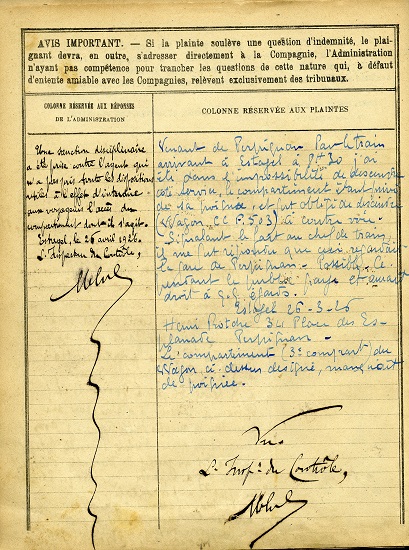 AVIS IMPORTANT. — Si la plainte soulève une question d'indemnité, le plai-
gnant devra, en outre, s'adresser directement à la Compagnie, l'Administration
n'ayant pas compétence pour trancher les questions de cette nature qui, à défaut
d'entente amiable avec les Compagnies, relèvent exclusivement des tribunaux.
COLONNE RÉSERVÉE AUX RÉPONSES
DE L'ADMINISTRATION
Une sanction disciplinaire
a été prise contre l'agent qui
n'a pas pris toutes les dispositions
à l'effet d'interdire
aux voyageurs l'accès du
compartiment dont il s'agit.
Estagel, le 26 avril 1926.
L'Inspecteur du Contrôle,
COLONNE RÉSERVÉE AUX PLAINTES
Venant de Perpignan par le train
arrivant à Estagel à 8h30 j'ai
été dans l'impossibilité de descendre
côté le compartiment étant privé
de sa poignée, et fut obligé de descendre
(Wagon CC F. 503) à contre voie.
Signalant le fait au chef de train,
il me fut répondu que ceci regardait
la gare de Perpignan. Possible. Ce-
pendant le public paye et aurait
droit à q.q. égards.
Estagel 26-3-26
Henri 34 Place des Es-
planade Perpignan.
Le compartiment (3e compart du
Wagon ci-dessus désigné, manquait
de poignée.
Vu
L'Inspr du Contrôle,